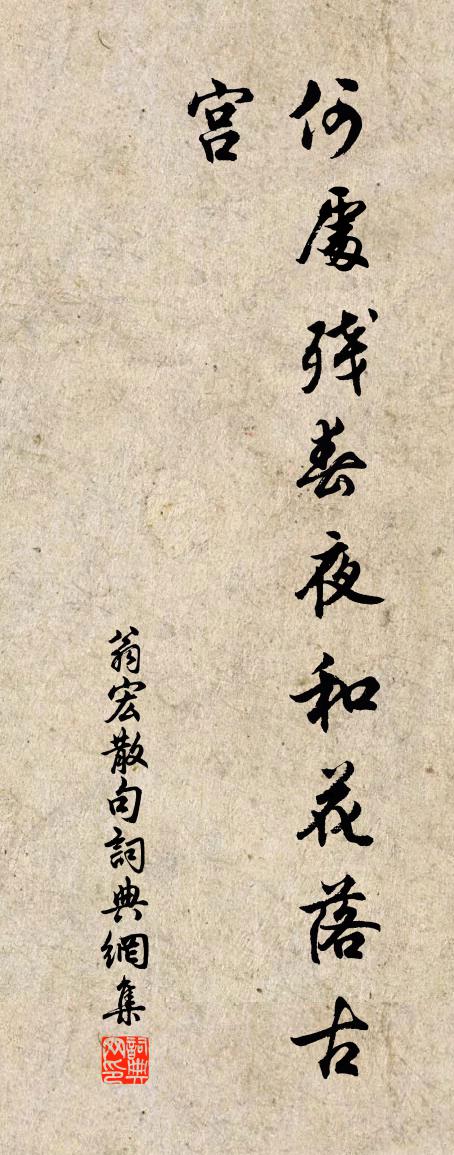 何處残春夜和花落古
宫
翁宏散句詞典網集
詞典
网印